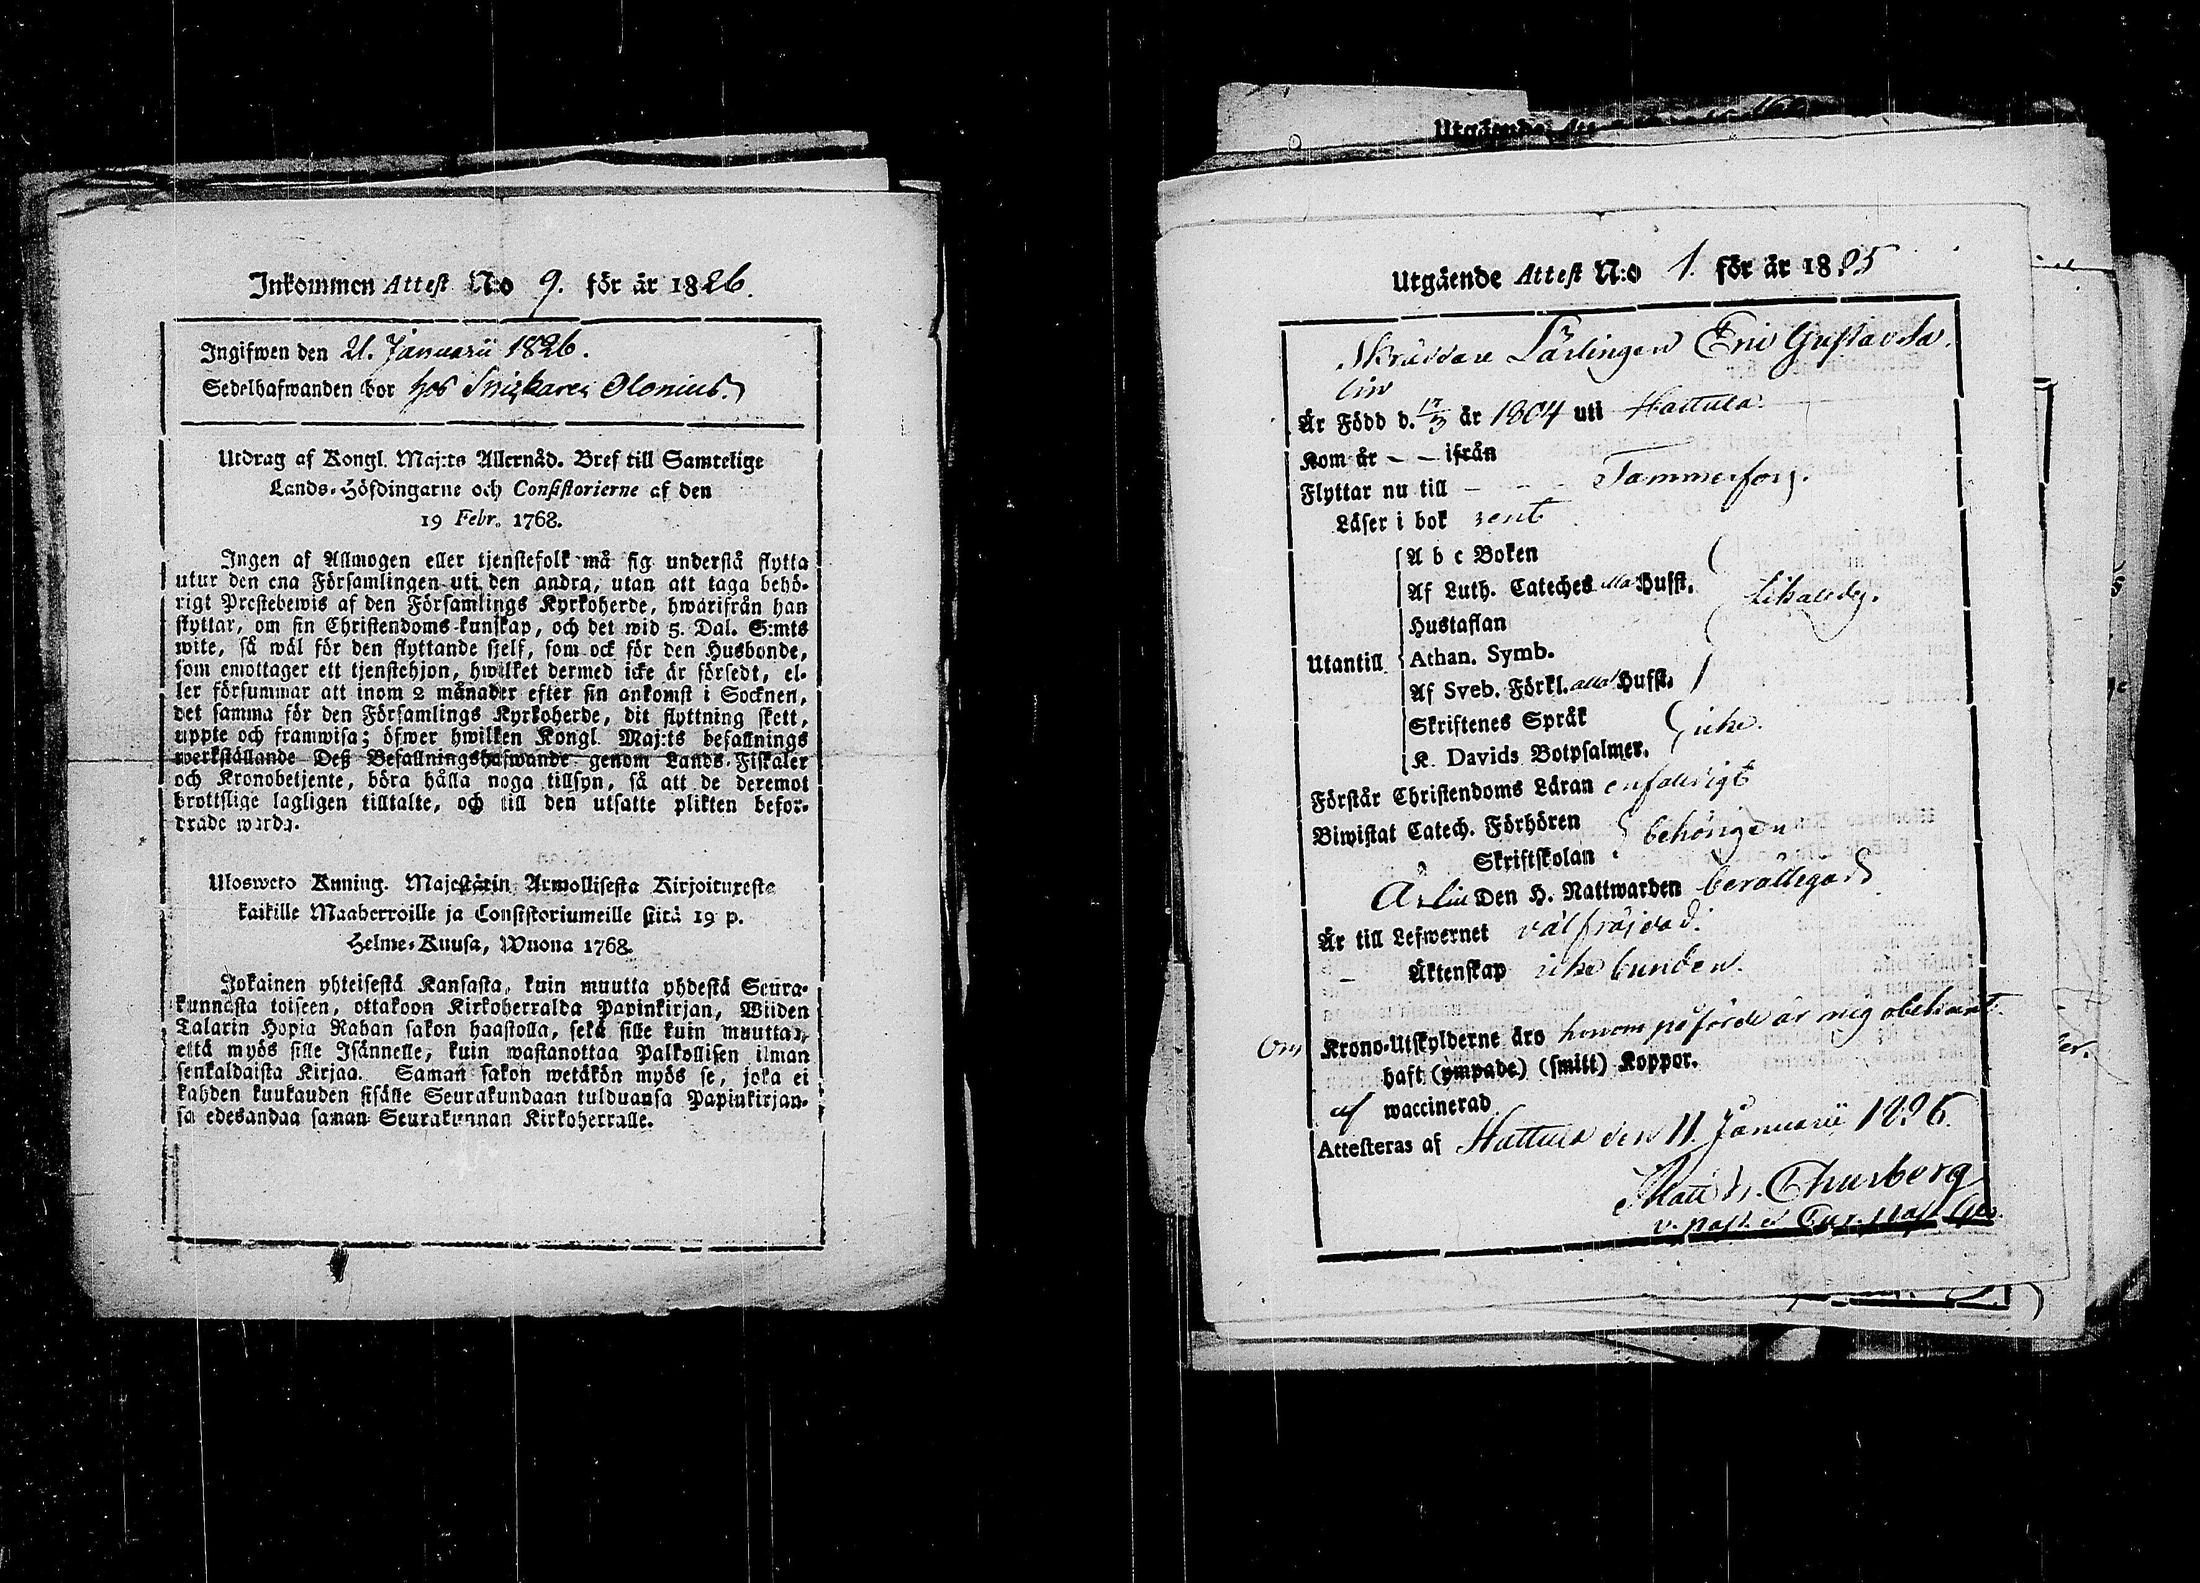 Inkommen Attest N:o 9. för år 1826.
Ingifwen den 21. Januarii 1826.
Sedelhafwanden bor hos Snickaren Olonius.
Utdrag af Kongl. Maj:ts Allernåd. Bref till Samtelige
Lands-Höfdingarne och Consistorierne af den
19 Febr. 1768.
Ingen af Allmogen eller tjenstefolk må sig understå flytta
utur den ena Församlingen uti den andra, utan att taga behö-
rigt Prestebewis af den Församlings Kyrkoherde, hwarifrån han
flyttar, om sin Christendoms-kunskap, och det wid 5. Dal. S:mts
wite, så wäl för den flyttande sjelf, som ock för den Husbonde,
som emottager ett tjenstehjon, hwilket dermed icke är försedt, el-
ler försummar att inom 2 månader efter sin ankomst i Socknen,
det samma för den Församlings Kyrkoherde, dit flyttning skett,
uppte och framwisa; öfwer hwilken Kongl. Maj:ts befallnings
werkställande Deß Befallningshafwande genom Lands-Fiskaler
och Kronobetjente, böra hålla noga tillsyn, så att de deremot
brottslige lagligen tilltalte, och till den utsatte plikten befor-
drade warda.
Ulosweto Kuning. Majestätin Armollisesta Kirjoituxesta
kaikille Maaherroille ja Consistoriumeille siitä 19 p.
Helme-Kuusa, Wuona 1768.
Jokainen yhteisestä Kansasta, kuin muutta yhdestä Seura-
kunnasta toiseen, ottakoon Kirkoherralda Papinkirjan, Wiiden
Talarin Hopia Rahan sakon haastolla, sekä sille kuin muuttaa,
että myös sille Isännelle, kuin wastanottaa Palkollisen ilman
senkaldaista Kirjaa. Saman sakon wetäkön myös se, joka ei
kahden kuukauden sisälle Seurakundaan tulduansa Papinkirjan-
sa edesandaa saman Seurakunnan Kirkoherralle.
Utgående Attest N:o 1. för år 1825
Skräddare Lärlingen Eric Gustavs
Är Född d. 17/3 år 1804 uti Hattula.
Kom år - - ifrån
Flyttar nu till - - - Tammerfors.
Läser i bok rent
Utantill
A b c Boken
Af Luth. Cateches alla Hufst.
Hustaflan
Athan. Symb.
Af Sveb. Förkl. alla Hufst.
likaledes.
Skriftenes Språk
K. Davids Botpsalmer.
icke.
Förstår Christendoms Läran enfaldigt
Biwistat Catech. Förhören
Skriftskolan
behörigen
Den H. Nattwarden berättigad
Är till Lefwernet välfräjdad.
- Äktenskap icke bunden.
Om Krono-Utskylderne äro honom påförde är mig obekant.
haft (ympade) (smitt) Koppor.
waccinerad
Attesteras af Hattula den 11. Januarii 1826.
Matth. Thusberg